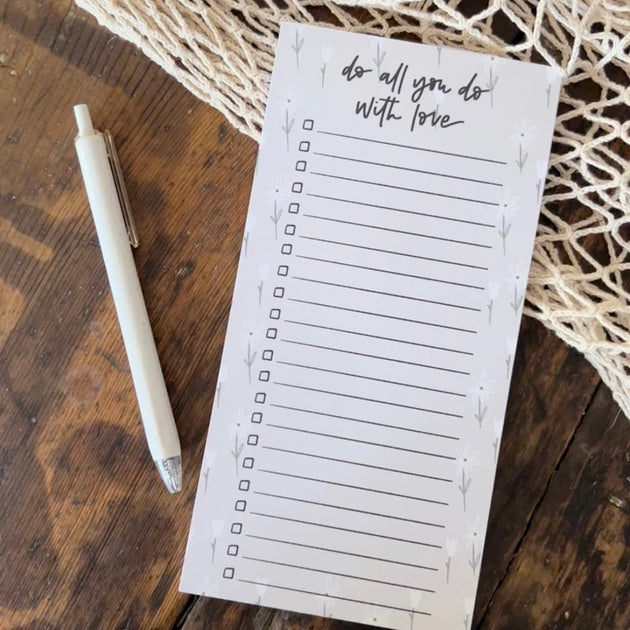 do all you do
with love